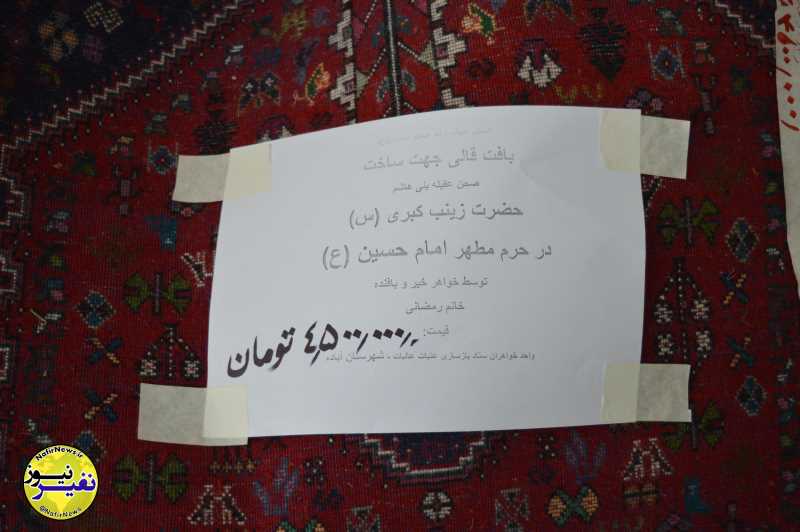 بافت قالی جهت ساخت
صحن عقیله بنی هاشم
حضرت زینب کبری (س)
در حرم مطهر امام حسین (ع)
توسط خواهر خیر و بافنده
خانم رمضانی
قیمت: ۴٫۵۰۰٫۰۰۰٫۰ تومان
واحد خواهران ستاد بازسازی عتبات عالیات - شهرستان آباده
NafirNews.ir
نفیر نیوز
@NafirNews